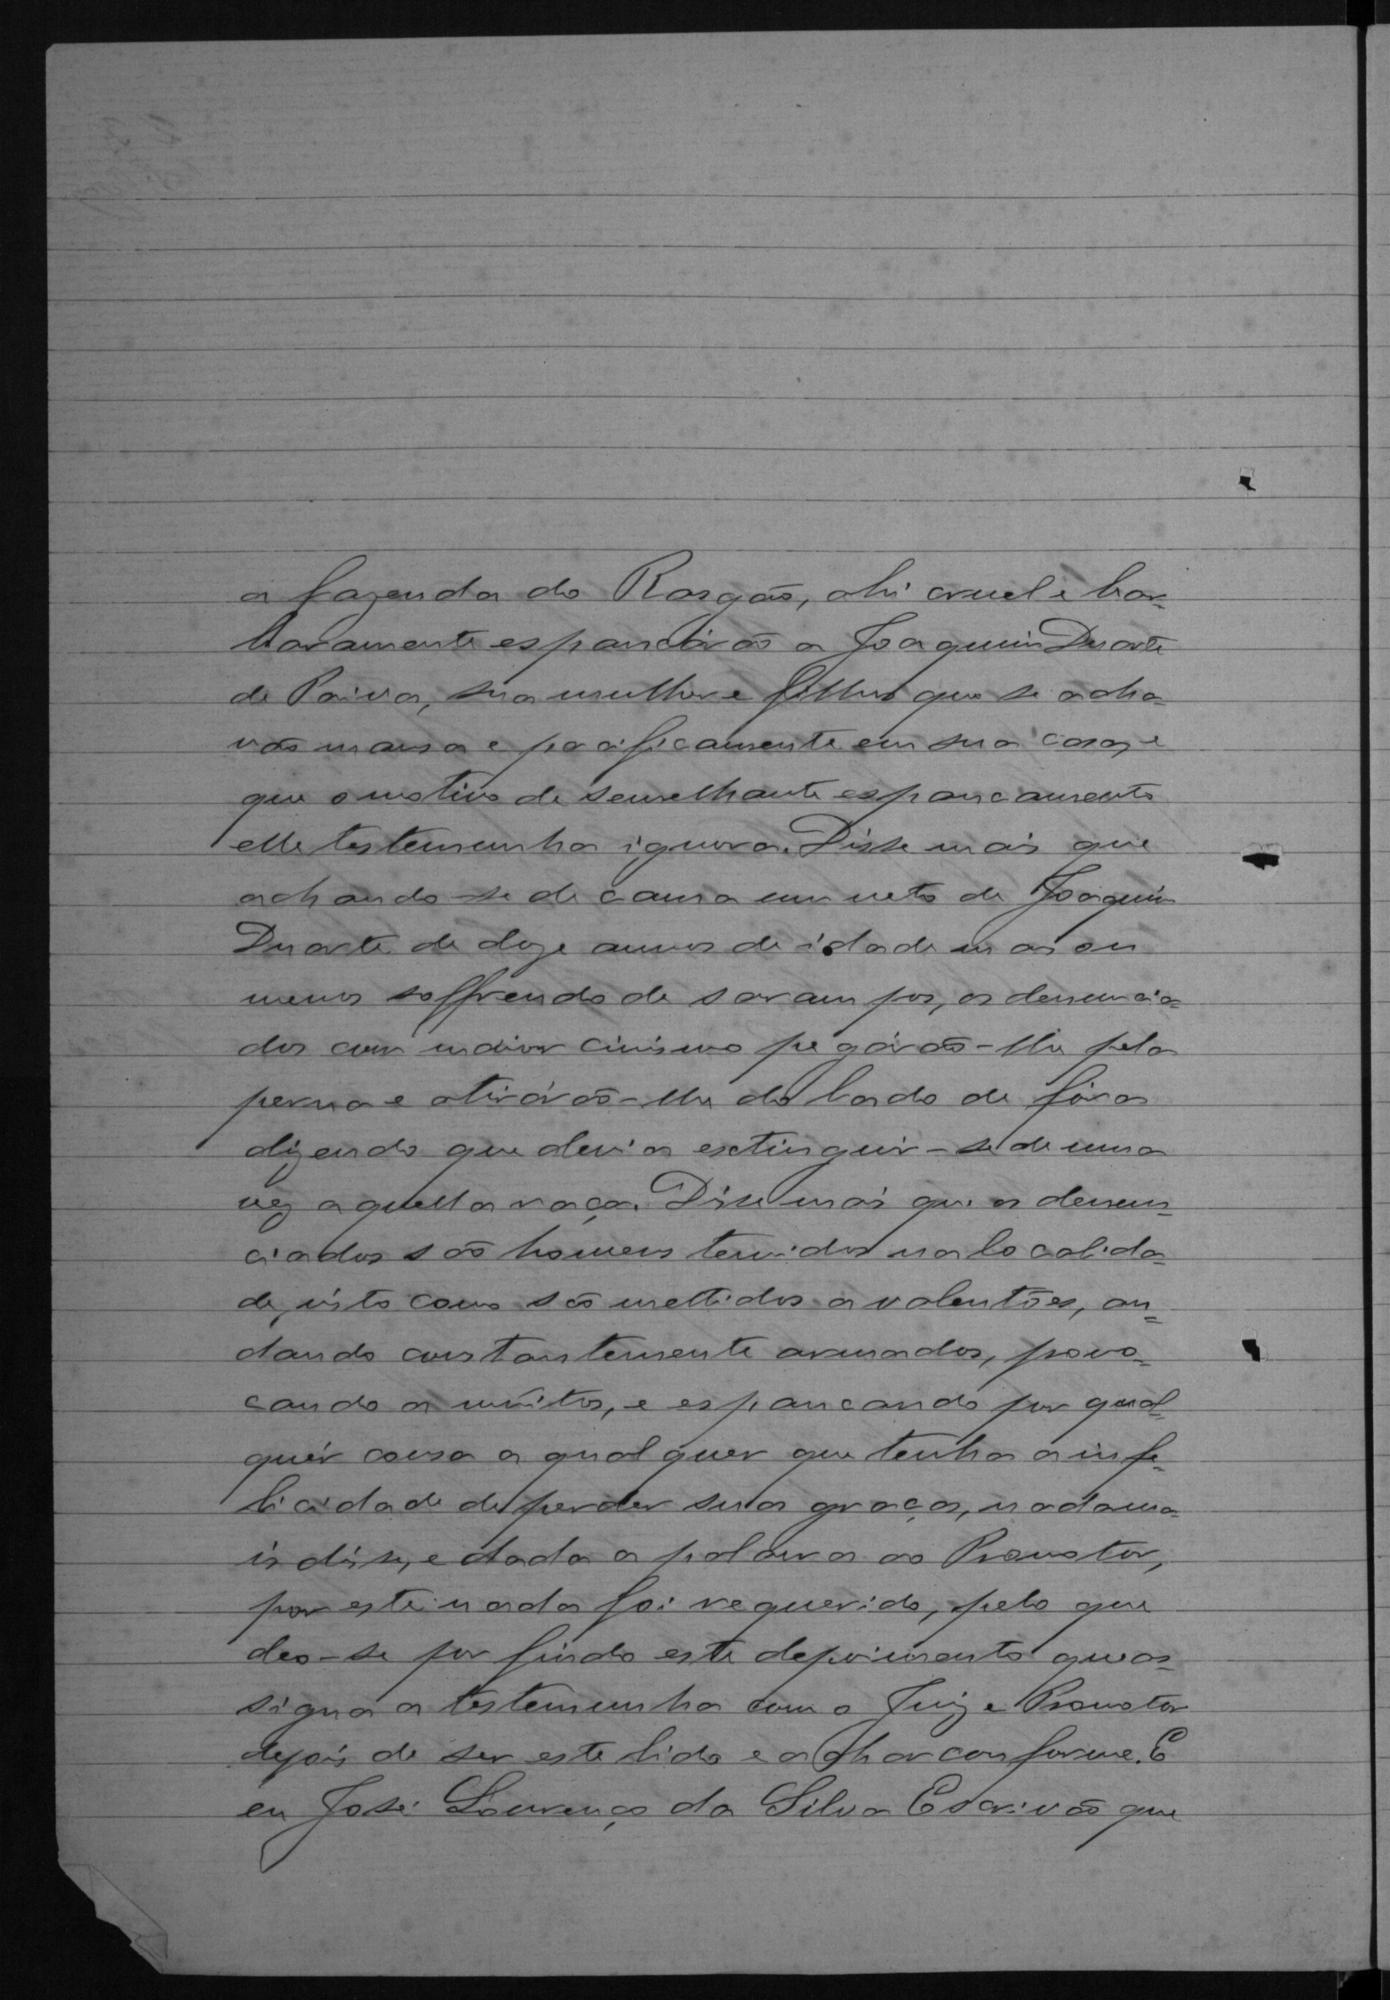 a fazenda do Rasgão, ahi cruel e bar=
baramente espancárão a Joaquim Duarte
de Paiva, sua mulher e filhos que se acha=
vão mansa e pacificamente em sua casa, e
que o motivo de semelhante espancamento
elle testemunha ignora. Disse mais que
achando-se de cama um neto de Joaquim
Duarte de doze annos de idade mais ou
menos soffrendo de sarampos, os denuncia=
dos com maior cinismo pegárão-lhe pela
perna e atirárão-lhe do lado de fóra
dizendo que devia extinguir-se de uma
vez aquella raça. Disse mais que os denun=
ciados são homens temidos na localida=
de, visto como são mettidos a valentões, an=
dando constantemente armados, provo=
cando a muitos, e espancando por qual=
quér cousa a qualquer que tenha a infe=
licidade de perder sua graça, nada ma=
is disse, e dada a palavra ao Promotor,
por este nada foi requerido, pelo que
deo-se por findo este depoimento que as=
signa a testemunha com o Juiz e Promotor
depois de ser este lido e achar conforme. E
eu José Lourenço da Silva Escrivão que